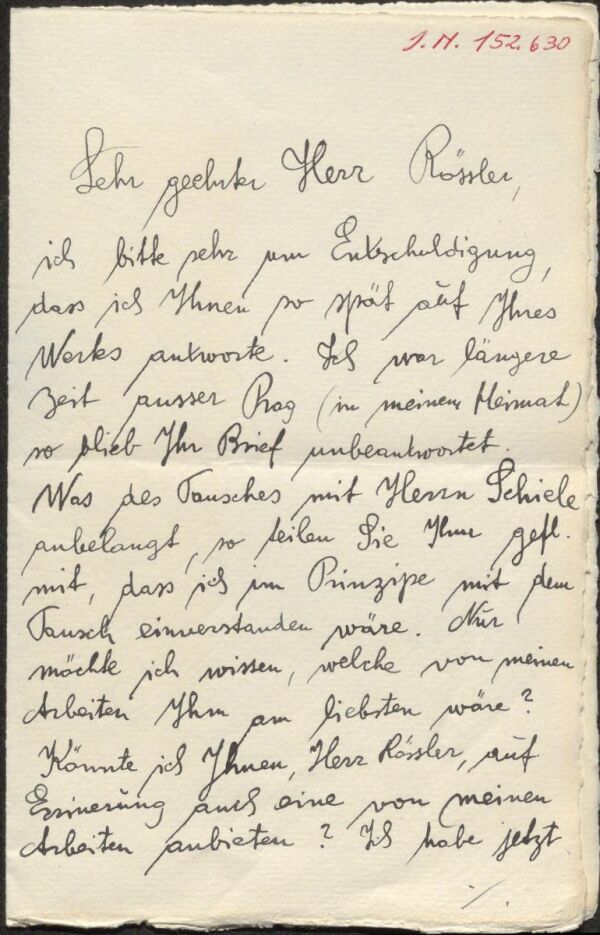 J.N. 152.630
Sehr geehrter Herr Rössler,
ich bitte sehr um Entschuldigung,
dass ich Ihnen so spät auf Ihres
Werkes antworte. Ich war längere
Zeit ausser Prag (in meiner Heimat)
so blieb Ihr Brief unbeantwortet.
Was des Tausches mit Herrn Schiele
anbelangt, so teilen Sie Ihm gefl.
mit, dass ich im Prinzipe mit dem
Tausch einverstanden wäre. Nur
möchte ich wissen, welche von meinen
Arbeiten Ihm am liebsten wäre?
Könnte ich Ihnen, Herr Rössler, auf
Errinerung auch eine von meinen
Arbeiten anbieten? Ich habe jetzt
./.